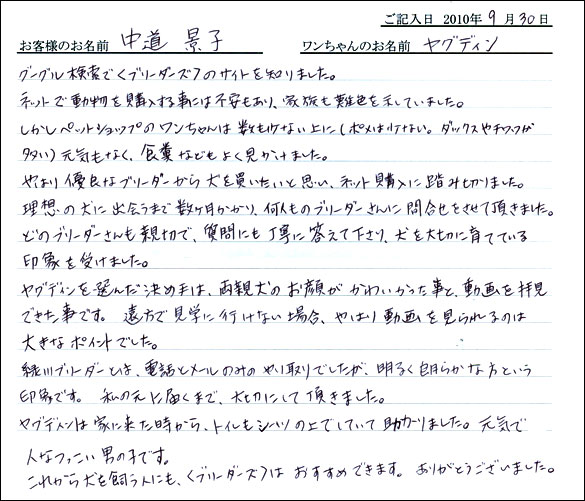 ご記入日 2010年 9月 30日
お客様のお名前 中道 景子 ワンちゃんのお名前 ヤグディン
グーグル検索で<ブリーダーズ>のサイトを知りました。
ネットで動物を購入する事には不安もあり、家族も難色を示していました。
しかしペットショップのワンちゃんは数も少ない上に(ポメは少ない。ダックスやチワワが
多い)元気もなく、食糞などもよく見かけました。
やはり優良なブリーダーから犬を買いたいと思い、ネット購入に踏み切りました。
理想の犬に出会うまで数ヶ月かかり、何人ものブリーダーさんに問合せをさせて頂きました。
どのブリーダーさんも親切で、質問にも丁寧に答えて下さり、犬を大切に育てている
印象を受けました。
ヤグディンを選んだ決め手は、両親犬のお顔がかわいかった事と、動画を拝見
できた事です。遠方で見学に行けない場合、やはり動画を見られるのは
大きなポイントでした。
ブリーダーとは、電話とメールのみのやり取りでしたが、明るく朗らかな方という
印象です。私の元に届くまで、大切にして頂きました。
ヤグディンは家に来た時から、トイレもシーツの上でしていて助かりました。元気で
人なつっこい男の子です。
これから犬を飼う人にも、<ブリーダーズ>はおすすめできます。ありがとうございました。